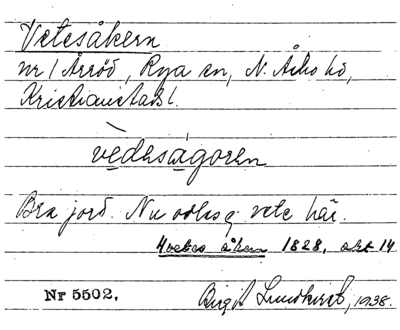 Vetesåkern
nr 1 Årröd, Rya sn, N. Åsbo hd,
Kristianstads l.
vèdeságoren
Bra jord. Nu odlas ej vete här.
Hvetes åken 1828, akt 14
Nr 5502. Birgit Lundkvist, 1938.